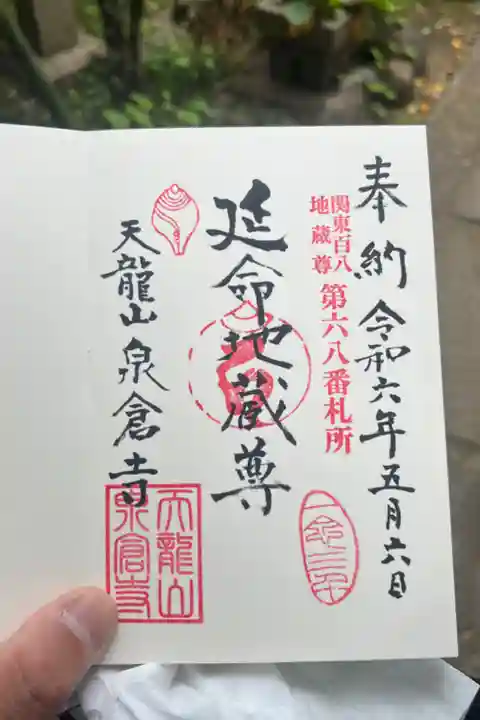 奉納 令和六年五月六日
関東百八
地蔵尊
第六八番札所
延命地蔵尊
天龍山泉倉寺
天龍山
泉倉寺